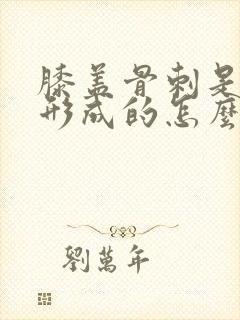 膝盖骨刺是
形成的怎麼
劉萬年